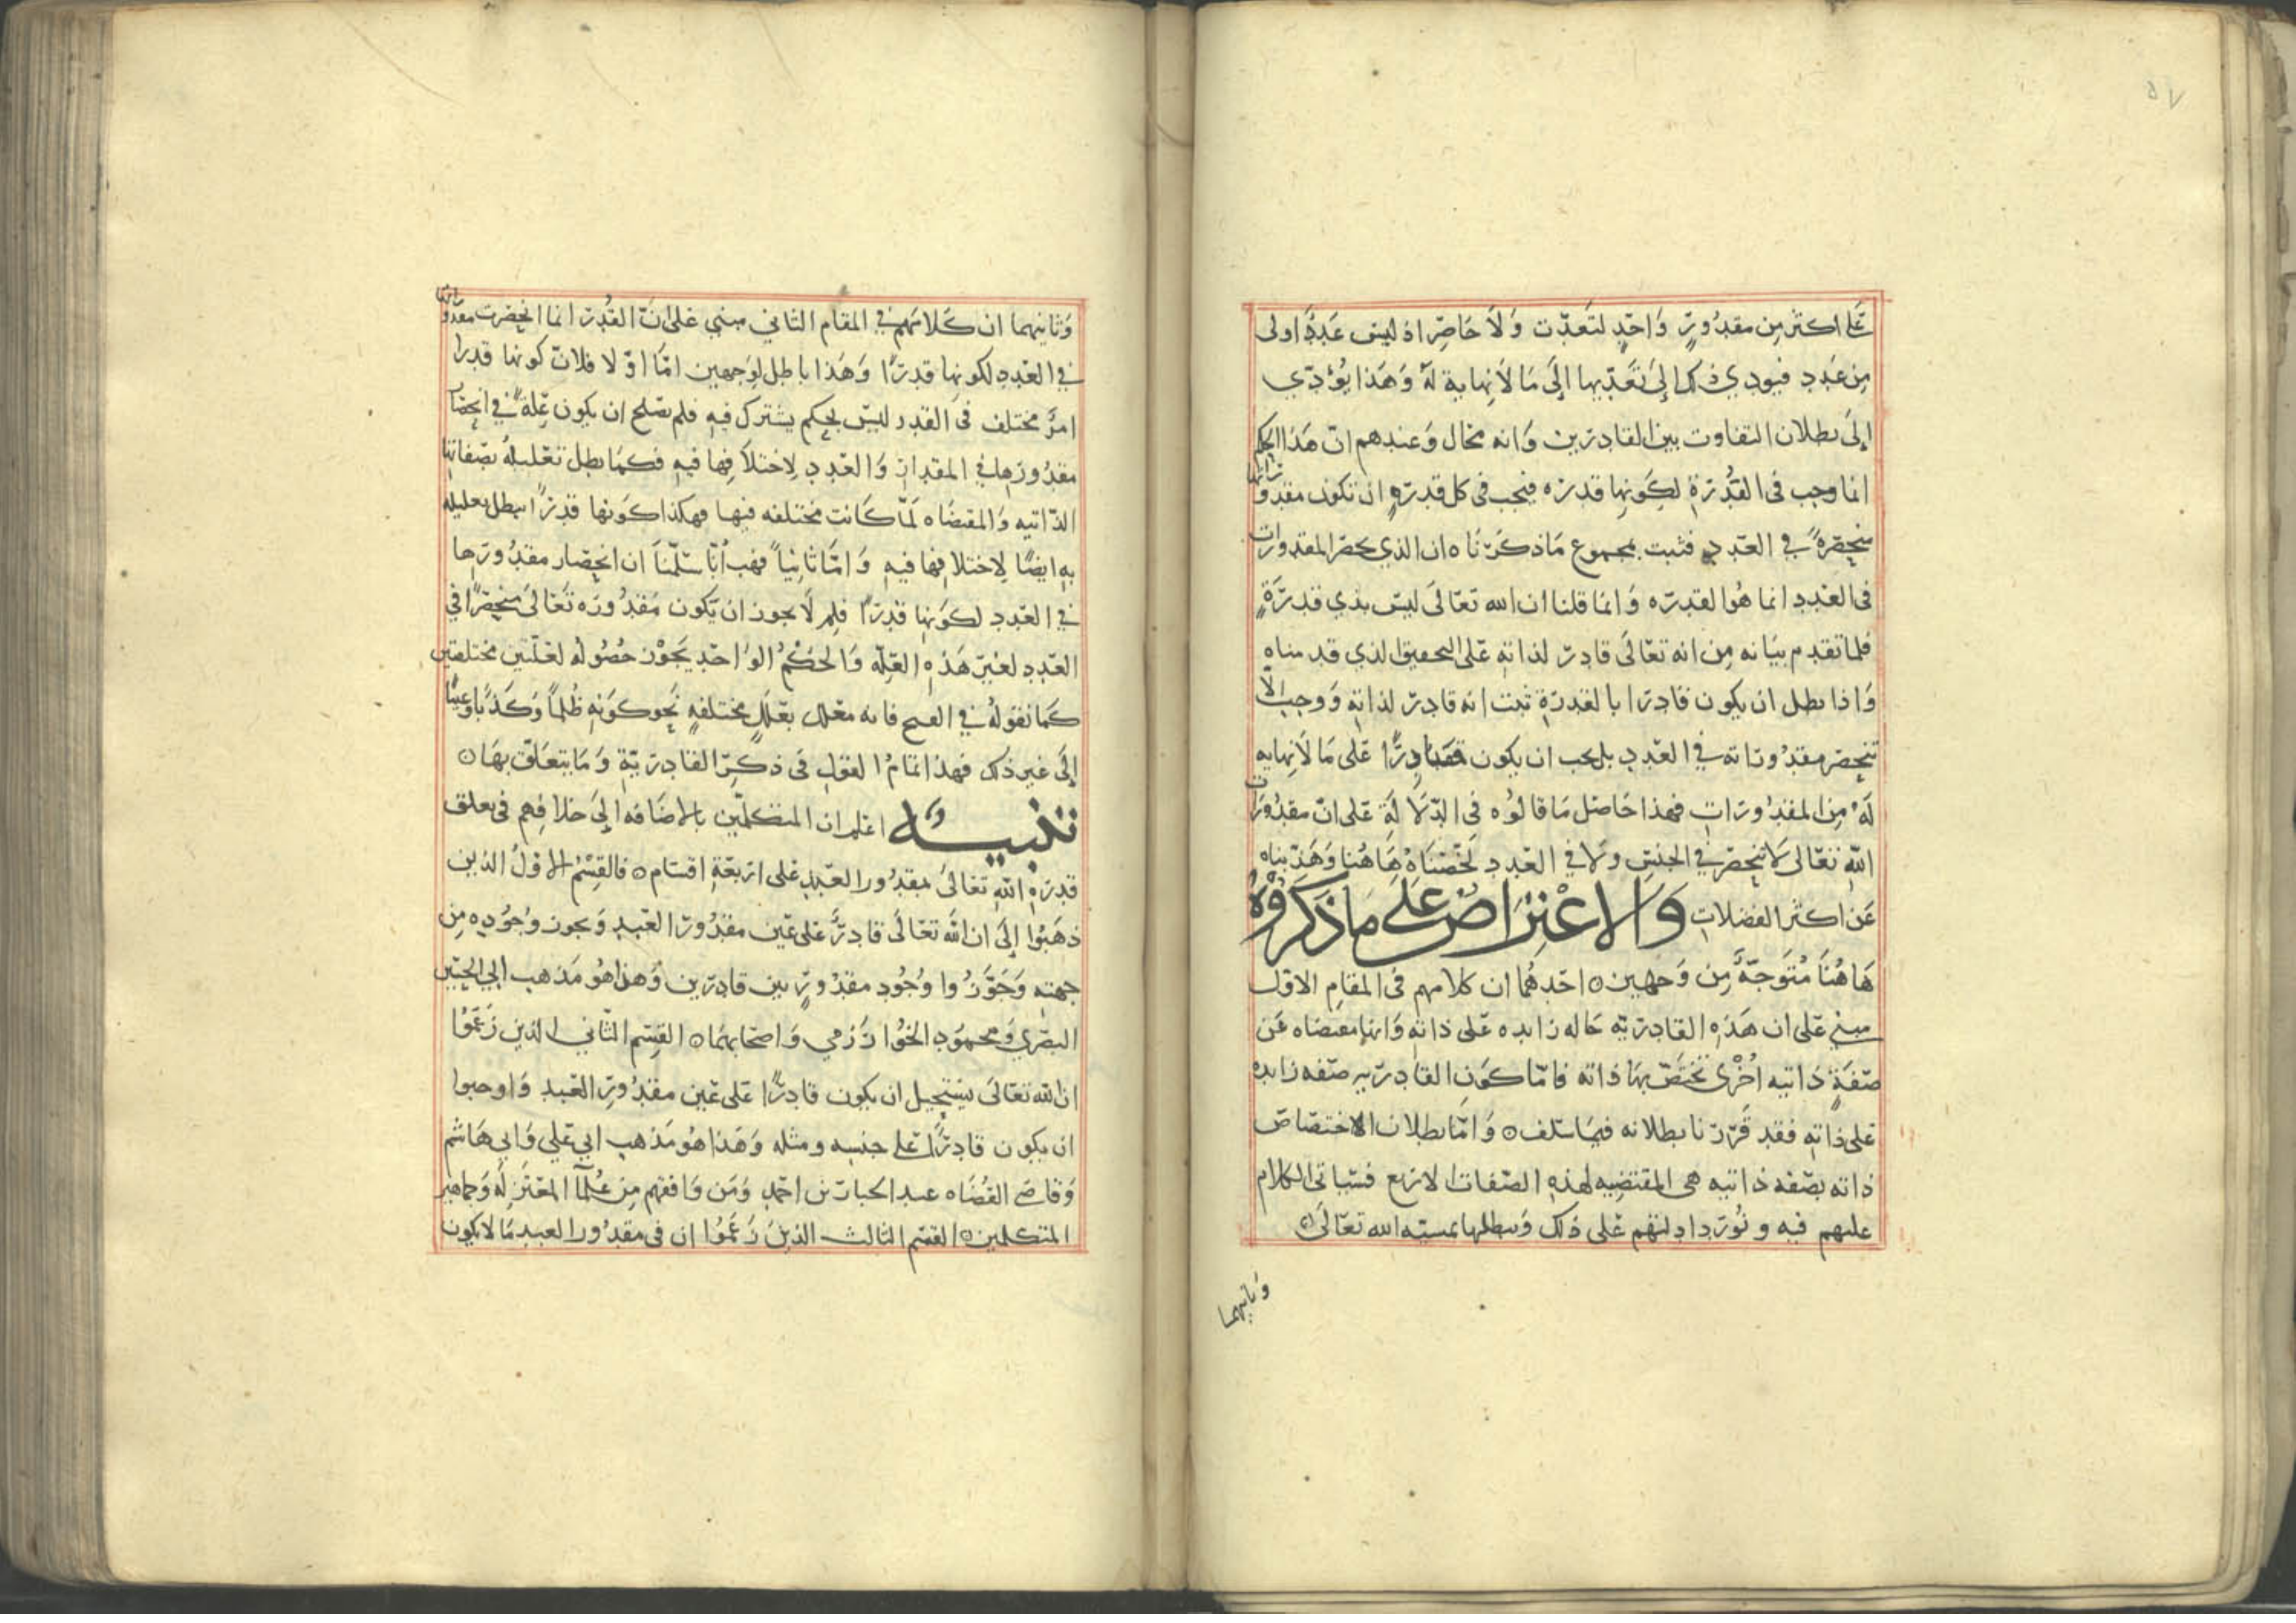 على اكثر من مقدُورٍ وَاحدٍ لتعدّت وَلاَ حَاصِرَ اذ ليس عَددٌ اولى
مِن عَددٍ فيودي ذلك إلىَ تَعَدّيها إلىَ مَا لاَ نِهاية لهُ وَهَذا يُؤدّي
إلىَ بطلان التفاوت بين القادرين وَانه محال وَعندهم انّ هَذا الحكم
انما وجب فى القُدْرَةِ لِكَونِها قدرَه فيجب فى كل قدرةٍ ان تكون مقدوراتها
منحصَرةً في العَددِ فثبت بمجموع مَا ذكَرْنَاه ان الذي يحصر المقدورات
فى العَددِ انما هُو القدرَه وَانما قلنا ان الله تعالىَ ليسَ بذي قدرَةٍ
فلما تقدم بيَانه مِن انه تعَالىَ قادِرٌ لذاتهِ عَلى التحقيق الذي قدمناه
وَاذا بطل ان يكون قادِرا بالقدرَةِ ثبت انه قادِرٌ لذاتهِ وَوجب الاّ
تنحصر مقدُوراته في العَددِ بل يجب ان يكون قَادِرًا عَلى مَا لاَ نِهايه
لهُ مِن المقدُورَاتِ فهذا حَاصل مَا قالوُه فى الدّلاَلَةِ عَلى انّ مقدُورَات
اللهِ تعَالىَ لاَ تنحصر في الجنسِ ولاَ في العَددِ لخّصْنَاهُ هَاهُنا وَهَذّبناه
عَن اكثر الفضلاتِ وَالاعْتِرَاضُ عَلىَ مَا ذَكَرُوْهُ
هَاهُنَا مُتَوَجّهٌ مِن وَجهين ۞ احَدهُما ان كلامهم فى المقامِ الاوّل
مبني عَلى ان هَذهِ القادِريّه حَاله زايده عَلى ذاتهِ وَانها مقتضاه عَن
صفَةٍ ذاتيه اُخْرَى تختصّ بهَا ذاته فامّا كَون القادِريه صفه زايده
عَلى ذاتهِ فقد قَرّرنا بطلانه فيمَا سَلف ۞ وَامّا بطلان الاختصَاصَ
ذاته بصفه ذاتيه هي المقتضِيه لهذهِ الصّفات الاربع فسَياتى الكلام
عليهم فيه ونُورد ادلتهم عَلى ذلك وَنبطلها بمشيّه الله تعَالىَ ۞
وَثانيهما
وَثانيهما ان كلامَهم فى المقام الثاني مبني عَلى انّ القُدر انما انحصَرت مقدوراتها
في العَددِ لكونِها قدرًا وَهَذا باطل لوَجهين امّا اوّلا فلانّ كونها قدرا
امرٌ مختلف فى القدر ليسَ بحكم يشترك فيهِ فلم يصلح ان يكون عِلةً في انحصَار
مقدُورِهَا في المقدارِ وَالعَددِ لاِختلاَفِها فيهِ فكمَا بطل تعْليلهُ بصفاتها
الذّاتيه وَالمقتضَاه لَمّا كَانت مختلفه فيها فهكذا كَونها قدرًا يبطل تعليله
بهِ ايضًا لاِختلاَفِها فيهِ وَامّا ثانيًا فهَب اَنّا سَلّمناَ ان انحِصَار مقدُورَها
في العَددِ لكَونِها قدرًا فلِم لاَ يجوز ان يَكون مَقدُورُه تعَالىَ منحصِرًا في
العَددِ لغيْر هَذهِ العِلّه وَالحُكْمُ الواحدِ يَجُوْز حُصُولهُ لعلّتين مختلفتين
كَمَا نقولهُ في القبح فانه معَلل بعلَلٍ مختلفهٍ نحوِ كوَنهِ ظُلْمًا وَكَذبًا وَعبثًا
إلىَ غير ذلك فهذا تمامُ القول فى ذكرِ القادِريّةِ وَمَا يتعَلّق بهَا ۞
تنْبيـــهٌ اعْلم ان المتكلّمين بالاضَافه إلىَ خلافِهم فى تعلق
قدرَةِ اللهِ تعَالىَ بمقدُور العَبدِ عَلى ارْبعَةِ اقسَام ۞ فالقِسْمُ الاوّلُ الذين
ذهَبُوا إلىَ ان اللهَ تعَالىَ قادِرٌ عَلى عَين مقدُورِ العَبدِ وَيجوز وُجُوده مِن
جهته وَجَوّزُوا وُجُودِ مقدُورٍ بين قادِرَين وَهذا هُو مَذهب ابي الحسَين
البصْري وَمحمُود الخُوَارَزمي وَاصحَابهمَا ۞ القِسْم الثّاني الذين زَعَمُوْا
ان الله تعَالىَ يستحِيل ان يكون قادِرًا عَلى عَين مقدُورِ العَبدِ وَاوجبوا
ان يكون قادِرًا عَلى جنسِه ومثله وَهَذا هُو مَذهب ابي عَلي وَابي هَاشم
وَقاضي القضَاه عبد الجبار بن احمَد وَمَن وَافقهم مِن عُلمَآ المعتَزِلَهِ وَجماهير
المتكلمين ۞ القسْم الثالث الذينَ زَعَمُوا ان فى مقدُور العبد مَا لا يكون